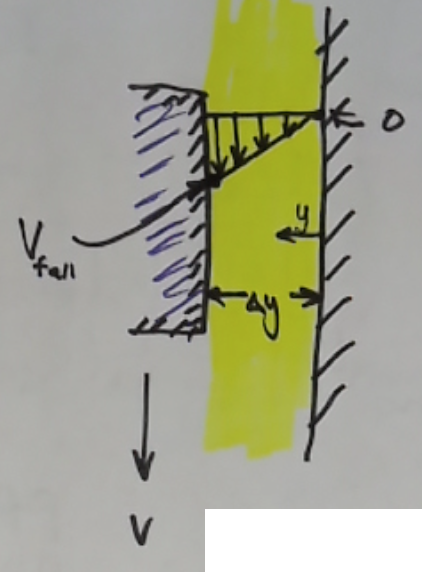 0
y
V_fall
Δy
V